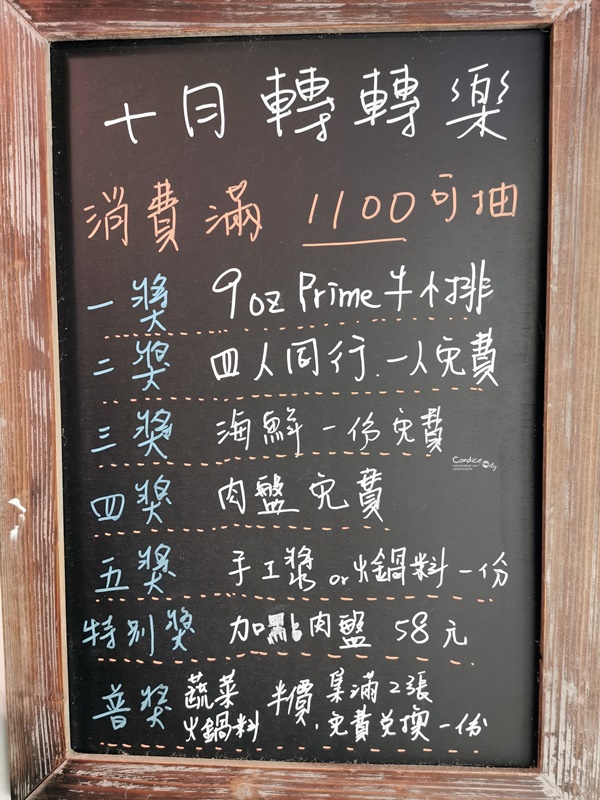 十月轉轉樂
消費滿 1100可抽
一獎 9oz Prime牛小排
二獎 四人同行.一人免費
三獎 海鮮一份免費
Candice City
四獎 肉盤免費
五獎 手工漿or火鍋料一份
特別獎 加點肉盤 58元
普獎 蔬菜 半價 集滿2張
火鍋料 .免費兌換一份